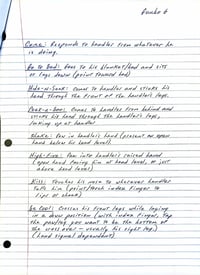 Come: Responds to handler from whatever he
is doing.
Go to Bed: Goes to his blanket/bed and sits
or lays down (point toward bed)
Hide-n-Seek: Comes to handler and sticks his
head through the front of the handler's legs.
Peek-a-Boo: Comes to handler from behind and
sticks his head through the handler's legs,
looking up at handler
Shake: Paw in handler's hand (present an open
hand below his head level).
High-Five: Paw into handler's raised hand
(open hand facing him at head level or just
above head level)
Kiss: Touches his nose to wherever handler
tells him (point/touch index finger to
lips or hand)
Be Cool: Crosses his front legs while laying
in a down position (with index finger, tap
the paw/leg you want to be the bottom of
the cross over - usually his right leg)
(hand signal dependent)